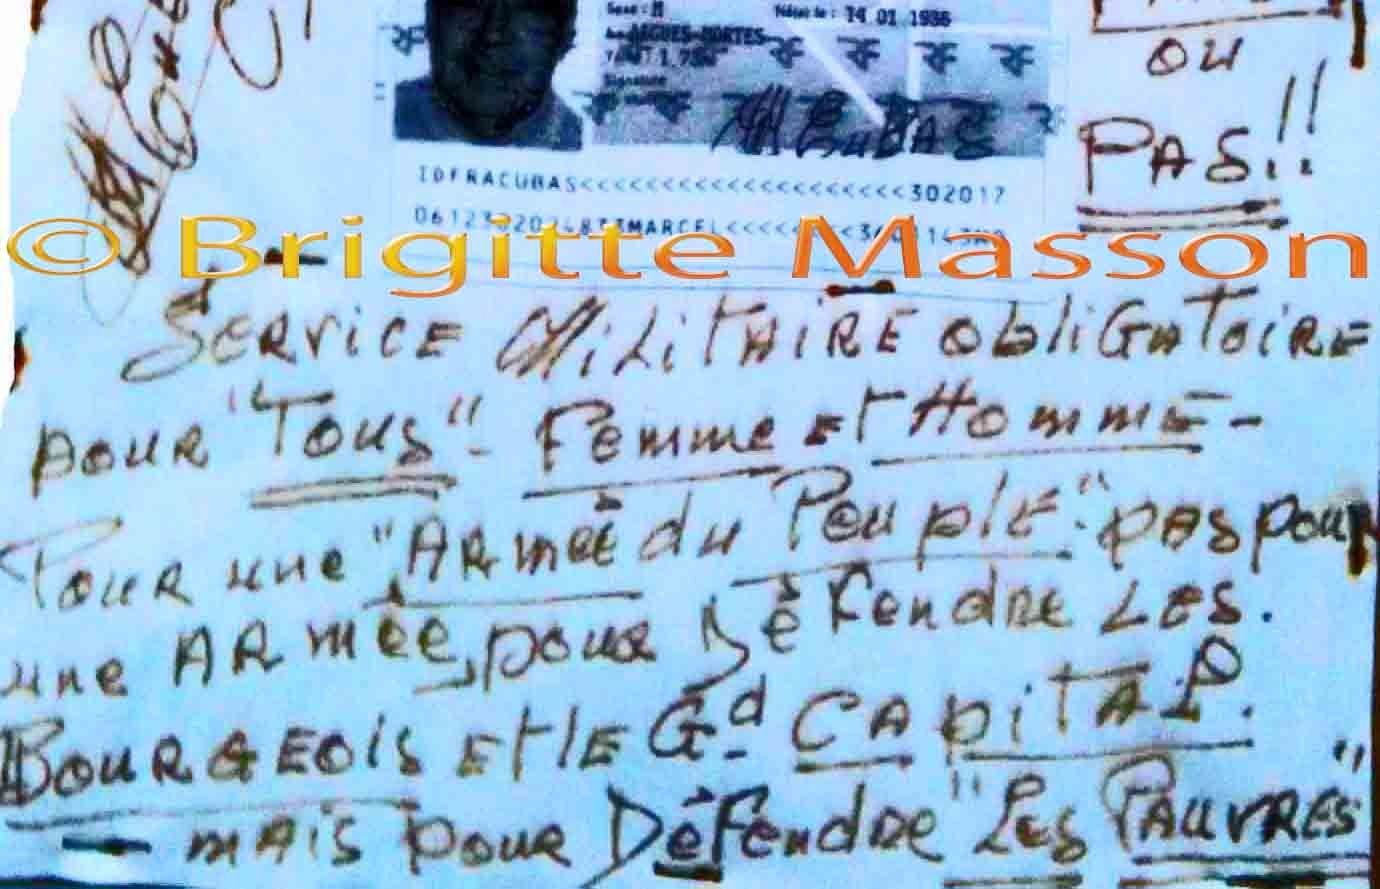 Sexe : M
Né(e) le : 14 01 1936
OU
à : AIGUES-MORTES
Taille : 1,75m
Signature
PAS!!
M CUBAS
IDFRACUBAS<<<<<<<<<<<<<<<<<<<<<302017
MARCEL
© Brigitte Masson
SERVICE MiLiTAiRE obliGAToiRE
pour "Tous"- Femme ET HommE-
Pour une "ARmée du PeuplE." pas pour
une ARmée, pour Défendre LES.
BOURGEOIS ET lE Gd CApiTAL.
- mais pour Défendre "LES PAUVRES"